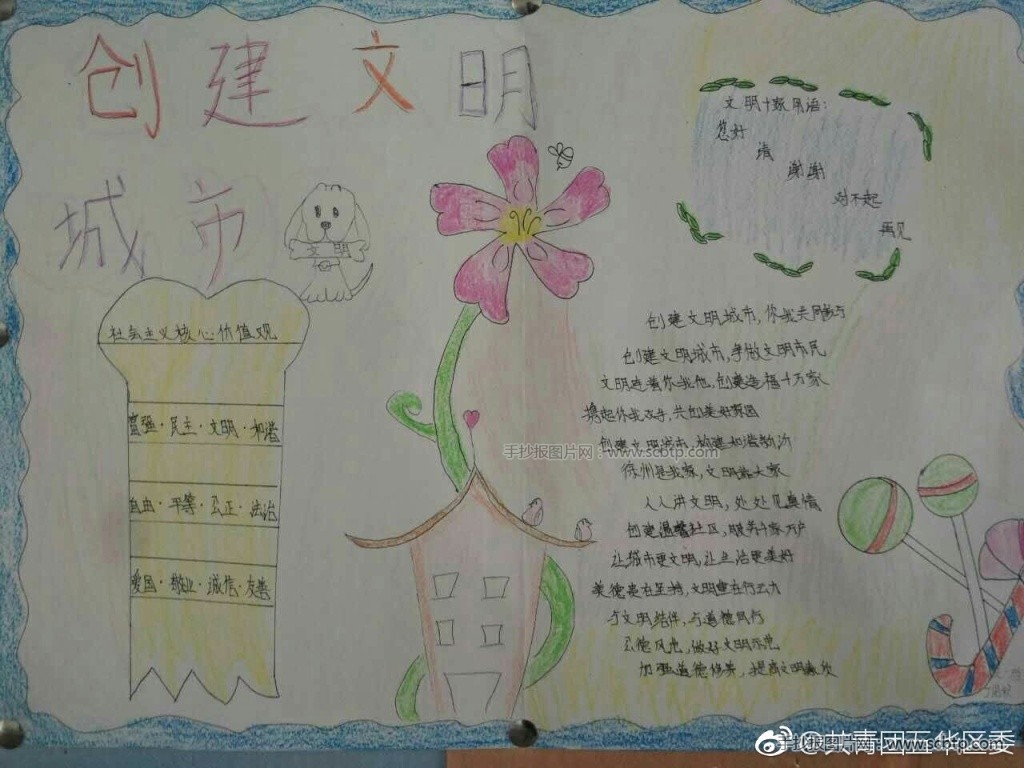 创建文明
城市
文明
社会主义核心价值观
富强·民主·文明·和谐
自由·平等·公正·法治
爱国·敬业·诚信·友善
文明十家用语:
您好
请
谢谢
对不起
再见
创建文明城市,你我共同参与
创建文明城市,争做文明市民
文明连着你我他,创建造福千万家
携起你我双手,共创美好家园
创建文明城市,构建和谐新沂
徐州是我家,文明靠大家
人人讲文明,处处见真情
创建温馨社区,服务千家万户
让城市更文明,让生活更美好
美德 文明重在行动
与文明结伴,与道德同行
公德 做好文明示范
加强道德修养,提高文明素质
手抄报图片网:www.scbtp.com
手抄报图片网:www.scbtp.com
@共青团五华区委